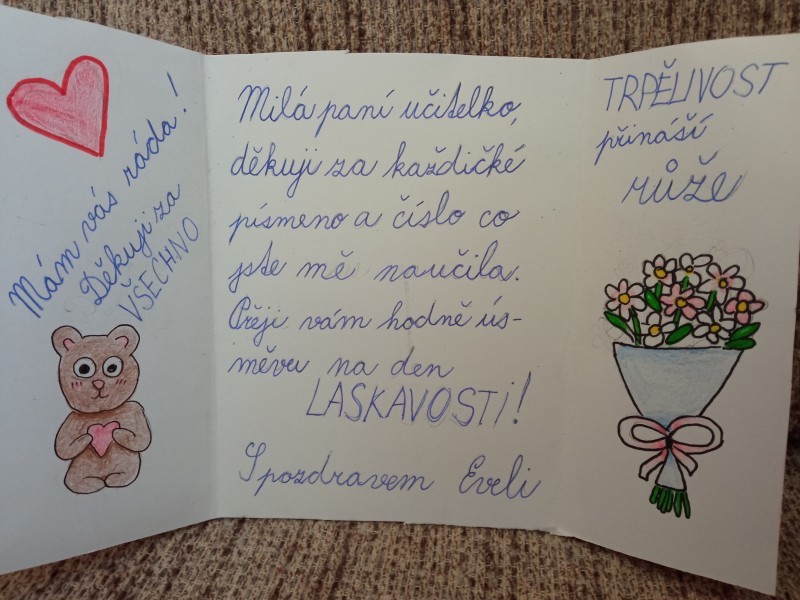 Mám vás ráda!
Děkuji za
VŠECHNO
Milá paní učitelko,
děkuji za každičké
písmeno a číslo co
jste mě naučila.
Přeji vám hodně ús-
měvu na den
LASKAVOSTI!
S pozdravem Eveli
TRPĚLIVOST
přináší
růže